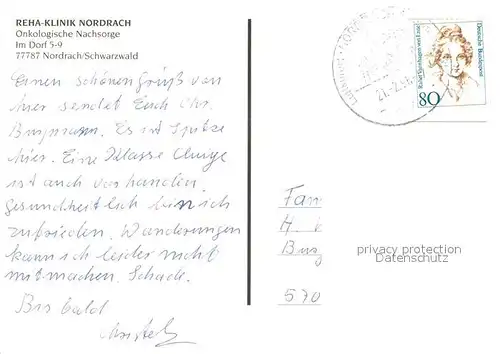 REHA-KLINIK NORDRACH
Onkologische Nachsorge
Im Dorf 5-9
77787 Nordrach/Schwarzwald
Einen schönen Gruß von
hier sendet Euch Chr.
Burgmann. Es ist Spitze
hier. Eine Klasse
ist auch vorhanden.
gesundheitlich bin ich
zufrieden. Wanderungen
kann ich leider nicht
mitmachen. Schade.
Bis bald
Deutsche Bundespost
80
Fam
H.
privacy protection
Datenschutz
570